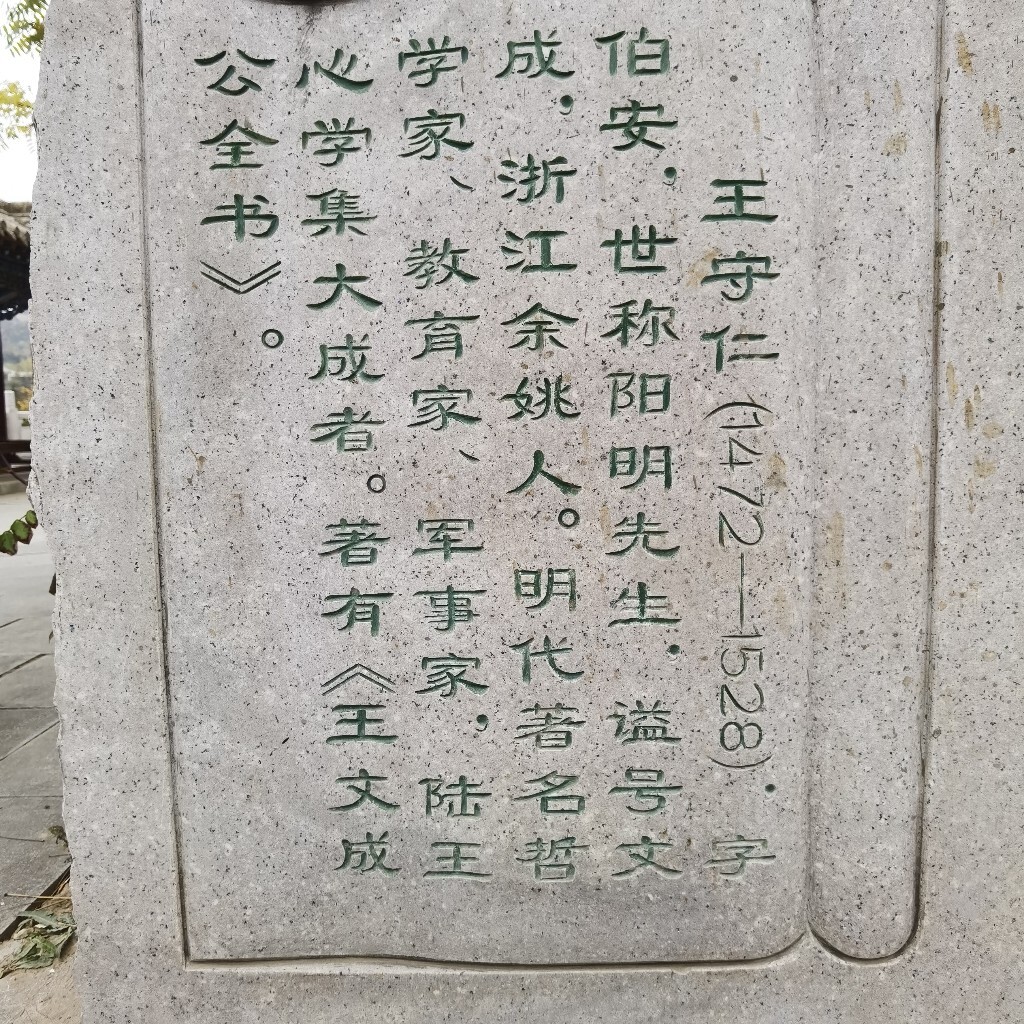 王守仁(1472——1528),字
伯安,世称阳明先生,谥号文
成,浙江余姚人。明代著名哲
学家、教育家、军事家,陆王
心学集大成者。著有《王文成
公全书》。